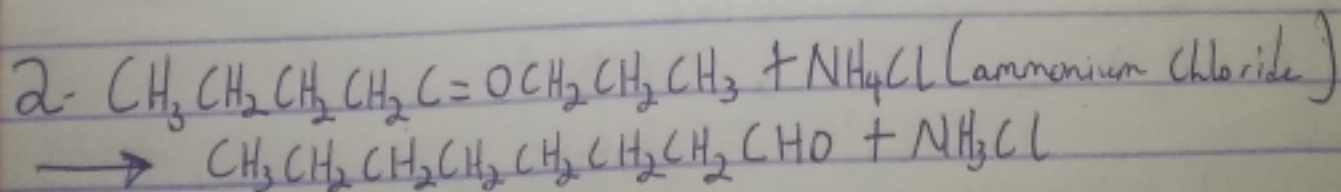 2- CH₃CH₂CH₂CH₂C=OCH₂CH₂CH₃ + NH₄Cl (ammonium Chloride)
→ CH₃CH₂CH₂CH₂CH₂CH₂CH₂CHO + NH₃Cl